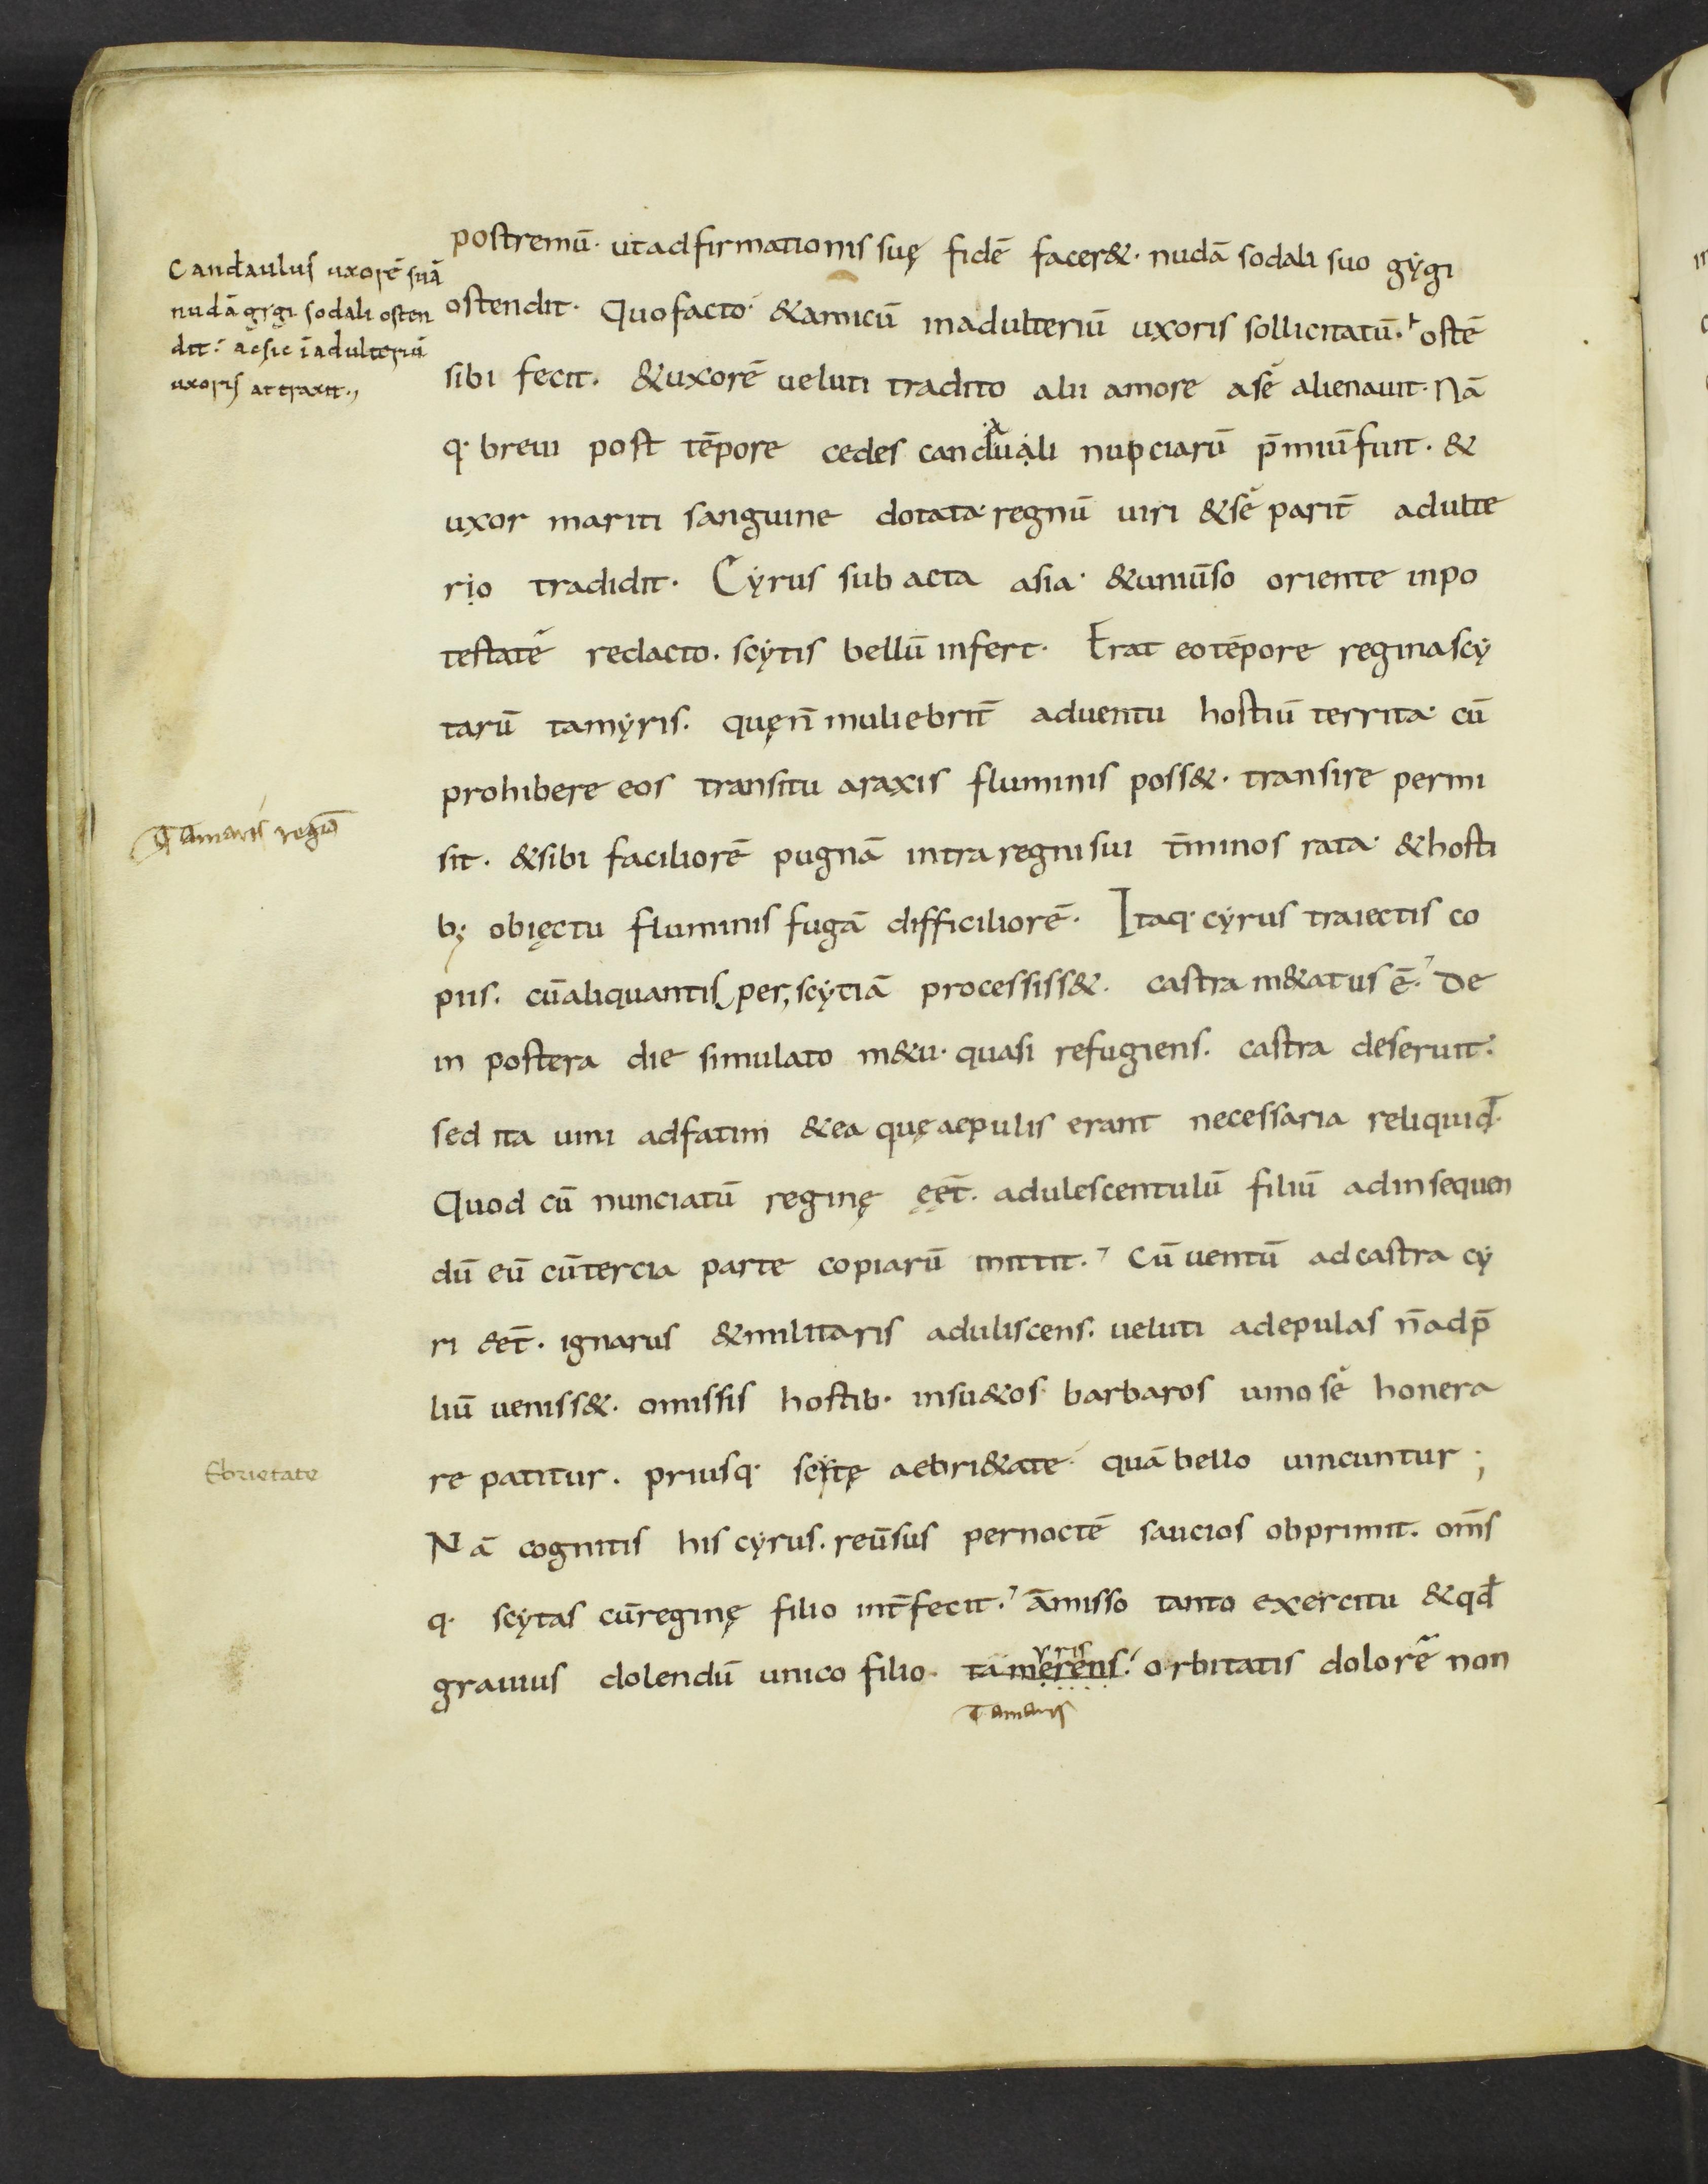 Candaulus uxorē suā
nudā gygi sodali osten
dit. ac sic ī adulteriū
uxoris attraxit.,
postremū. ut adfirmationis suę fidē facer&. nudā sodali suo gẏgi
ostendit. Quo facto. & amicū in adulteriū uxoris sollicitatū. ostē
sibi fecit. & uxorē ueluti tradito alii amore a sē alienauit. Nā
q. breui post tēpore cedes canduạli nupciarū p̄miū fuit. &
uxor mariti sanguine dotata. regnū uiri & sē parit̄ adulte
rịo tradidit. Cẏrus sub acta asia. & uniūso oriente in po
testatē redacto. scẏtis bellū infert. Erat eo tēpore regina scẏ
tarū tamẏris. quę n̄ muliebrit̄ aduentu hostiū territa. cū
prohibere eos transitu araxis fluminis poss&. transire permi
Tamaris regina
sit. & sibi faciliorē pugnā intra regni sui t̄minos rata. & hosti
b; obięctu fluminis fugā difficiliorē. Itaq. cẏrus traiectis co
piis. cū aliquantis per, scẏtiā processiss&. castra m&atus ē. De
in postera die simulato m&u. quasi refugiens. castra deseruit.
sed ita uini adfatim & ea quę aepulis erant necessaria reliquid.
Quod cū nunciatū reginę ęęt̄. adulescentulū filiū ad insequen
dū eū cū tercia parte copiarū mittit. Cū uentū ad castra cẏ
ri eet̄. ignarus & militaris aduliscens. ueluti ad epulas n̄ ad p̄
liū ueniss&. omissis hostib. insu&os barbaros uino sē honera
Ebrietate
re patitur. priusq. scẏtę aebri&ate quā bello uincuntur;
Nā cognitis his cẏrus. reūsus per noctē saucios obprimit. om̄s
q. scẏtas cū reginę filio int̄fecit. āmisso tanto exercitu & qđ
yris
grauius dolendū unico filio. tamẹṛẹṇṣ. orbitatis dolorē non
Tamaris